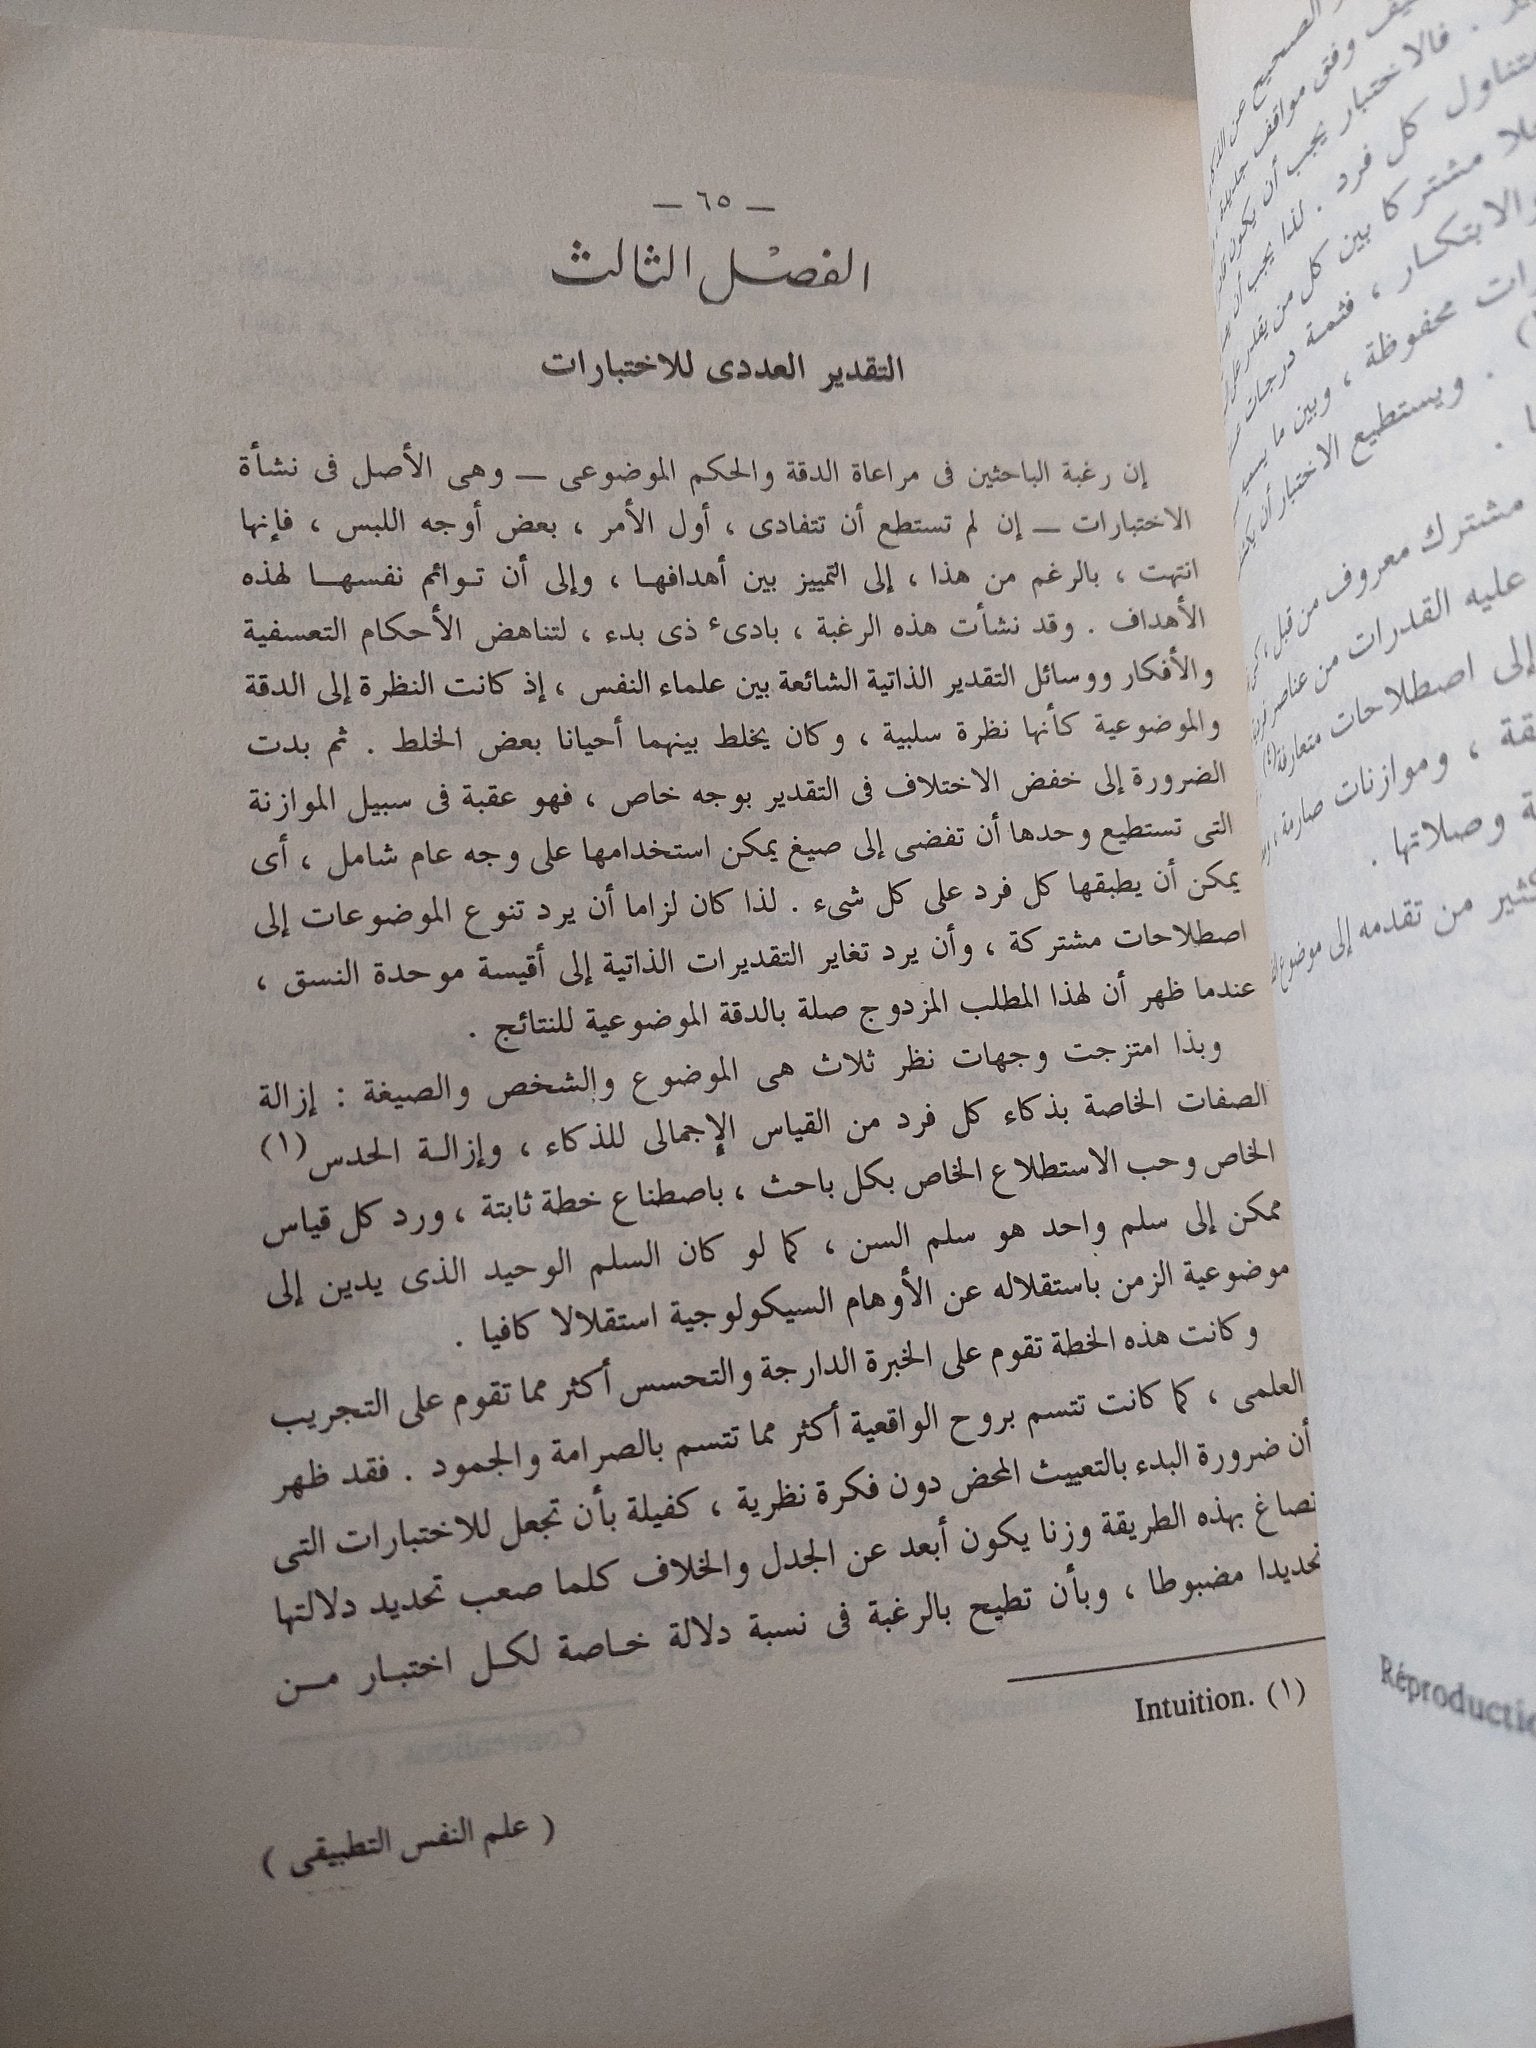 — ٦٥ —
الفصل الثالث
التقدير العددى للاختبارات
إن رغبة الباحثين فى مراعاة الدقة والحكم الموضوعى — وهى الأصل فى نشأة
الاختبارات — إن لم تستطع أن تتفادى ، أول الأمر ، بعض أوجه اللبس ، فإنها
انتهت ، بالرغم من هذا ، إلى التمييز بين أهدافها ، وإلى أن توائم نفسها لهذه
الأهداف . وقد نشأت هذه الرغبة ، بادىء ذى بدء ، لتناهض الأحكام التعسفية
والأفكار ووسائل التقدير الذاتية الشائعة بين علماء النفس ، إذ كانت النظرة إلى الدقة
والموضوعية كأنها نظرة سلبية ، وكان يخلط بينهما أحيانا بعض الخلط . ثم بدت
الضرورة إلى خفض الاختلاف فى التقدير بوجه خاص ، فهو عقبة فى سبيل الموازنة
التى تستطيع وحدها أن تفضى إلى صيغ يمكن استخدامها على وجه عام شامل ، أى
يمكن أن يطبقها كل فرد على كل شىء . لذا كان لزاما أن يرد تنوع الموضوعات إلى
اصطلاحات مشتركة ، وأن يرد تغاير التقديرات الذاتية إلى أقيسة موحدة النسق ،
عندما ظهر أن لهذا المطلب المزدوج صلة بالدقة الموضوعية للنتائج .
وبذا امتزجت وجهات نظر ثلاث هى الموضوع والشخص والصيغة : إزالة
الصفات الخاصة بذكاء كل فرد من القياس الإجمالى للذكاء ، وإزالة الحدس (١)
الخاص وحب الاستطلاع الخاص بكل باحث ، باصطناع خطة ثابتة ، ورد كل قياس
ممكن إلى سلم واحد هو سلم السن ، كما لو كان السلم الوحيد الذى يدين إلى
موضوعية الزمن باستقلاله عن الأوهام السيكولوجية استقلالا كافيا .
وكانت هذه الخطة تقوم على الخبرة الدارجة والتحسس أكثر مما تقوم على التجريب
العلمى ، كما كانت تتسم بروح الواقعية أكثر مما تتسم بالصرامة والجمود . فقد ظهر
أن ضرورة البدء بالتعييث المحض دون فكرة نظرية ، كفيلة بأن تجعل للاختبارات التى
تصاغ بهذه الطريقة وزنا يكون أبعد عن الجدل والخلاف كلما صعب تحديد دلالتها
تحديدا مضبوطا ، وبأن تطيح بالرغبة فى نسبة دلالة خاصة لكل اختبار من
(١) Intuition.
( علم النفس التطبيقى )
الصحيح عن
وفق مواقف جديدة
. فالاختبار يجب أن يكون
تناول كل فرد . لذا يجب أن
مشتركا بين كل من يقدر على
والابتكار ، فثمة درجات
محفوظة ، وبين ما
. ويستطيع الاختبار أن
مشترك معروف من قبل ،
عليه القدرات من عناصر
إلى اصطلاحات متعارفة (٤)
، وموازنات صارمة ،
وصلاتها .
من تقدمه إلى موضوع